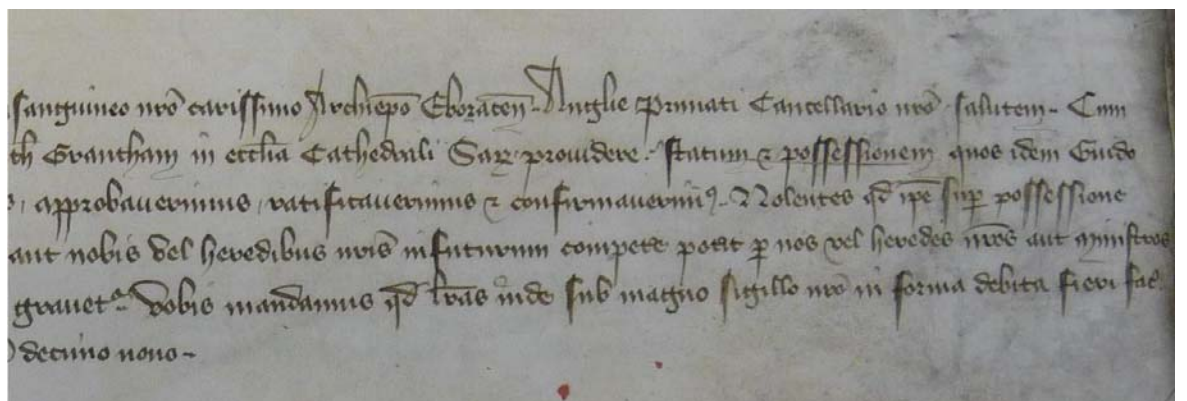 sanguineo nr̄o carissimo Archiep̄o Eboracen̄ Anglie Primati Cancellario nr̄o salutem Cum
Grantham in eccl̄ia Cathedrali Saꝝ providere statum ⁊ possessionem quos idem Guido
approbaverimus ratificaverimus ⁊ confirmaverimꝰ Nolentes qd̄ ip̄e sup̄ possessione
aut nobis vel heredibus nr̄is infuturum compete potit p̱ nos vel heredes nr̄os aut ministros
gravetᵃ vobis mandamus qd̄ lr̄as inde sub magno sigillo nr̄o in forma debita fieri fac̄
decimo nono